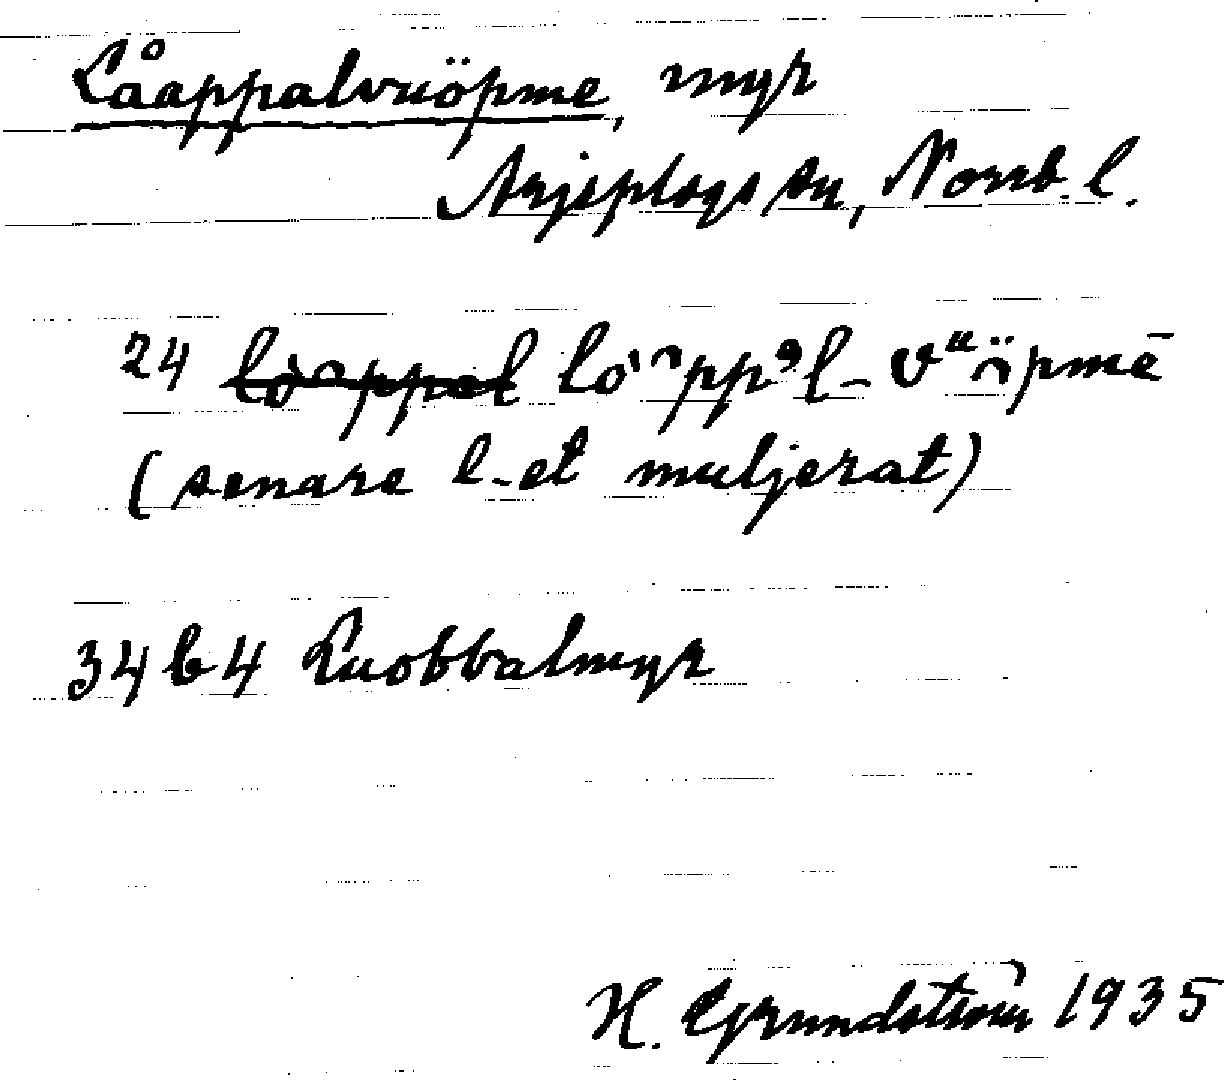 Låappalvuöpme, myr
Arjeplogs sn, Norrb. l.
24
(senare l-et muljerat)
34 b 4 Luobbalmyr
H. Grundström 1935